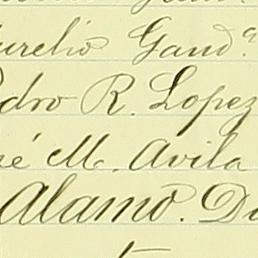 Aurelio Gand.ª
Pedro R. Lopez
José M. Avila
Alamo. D